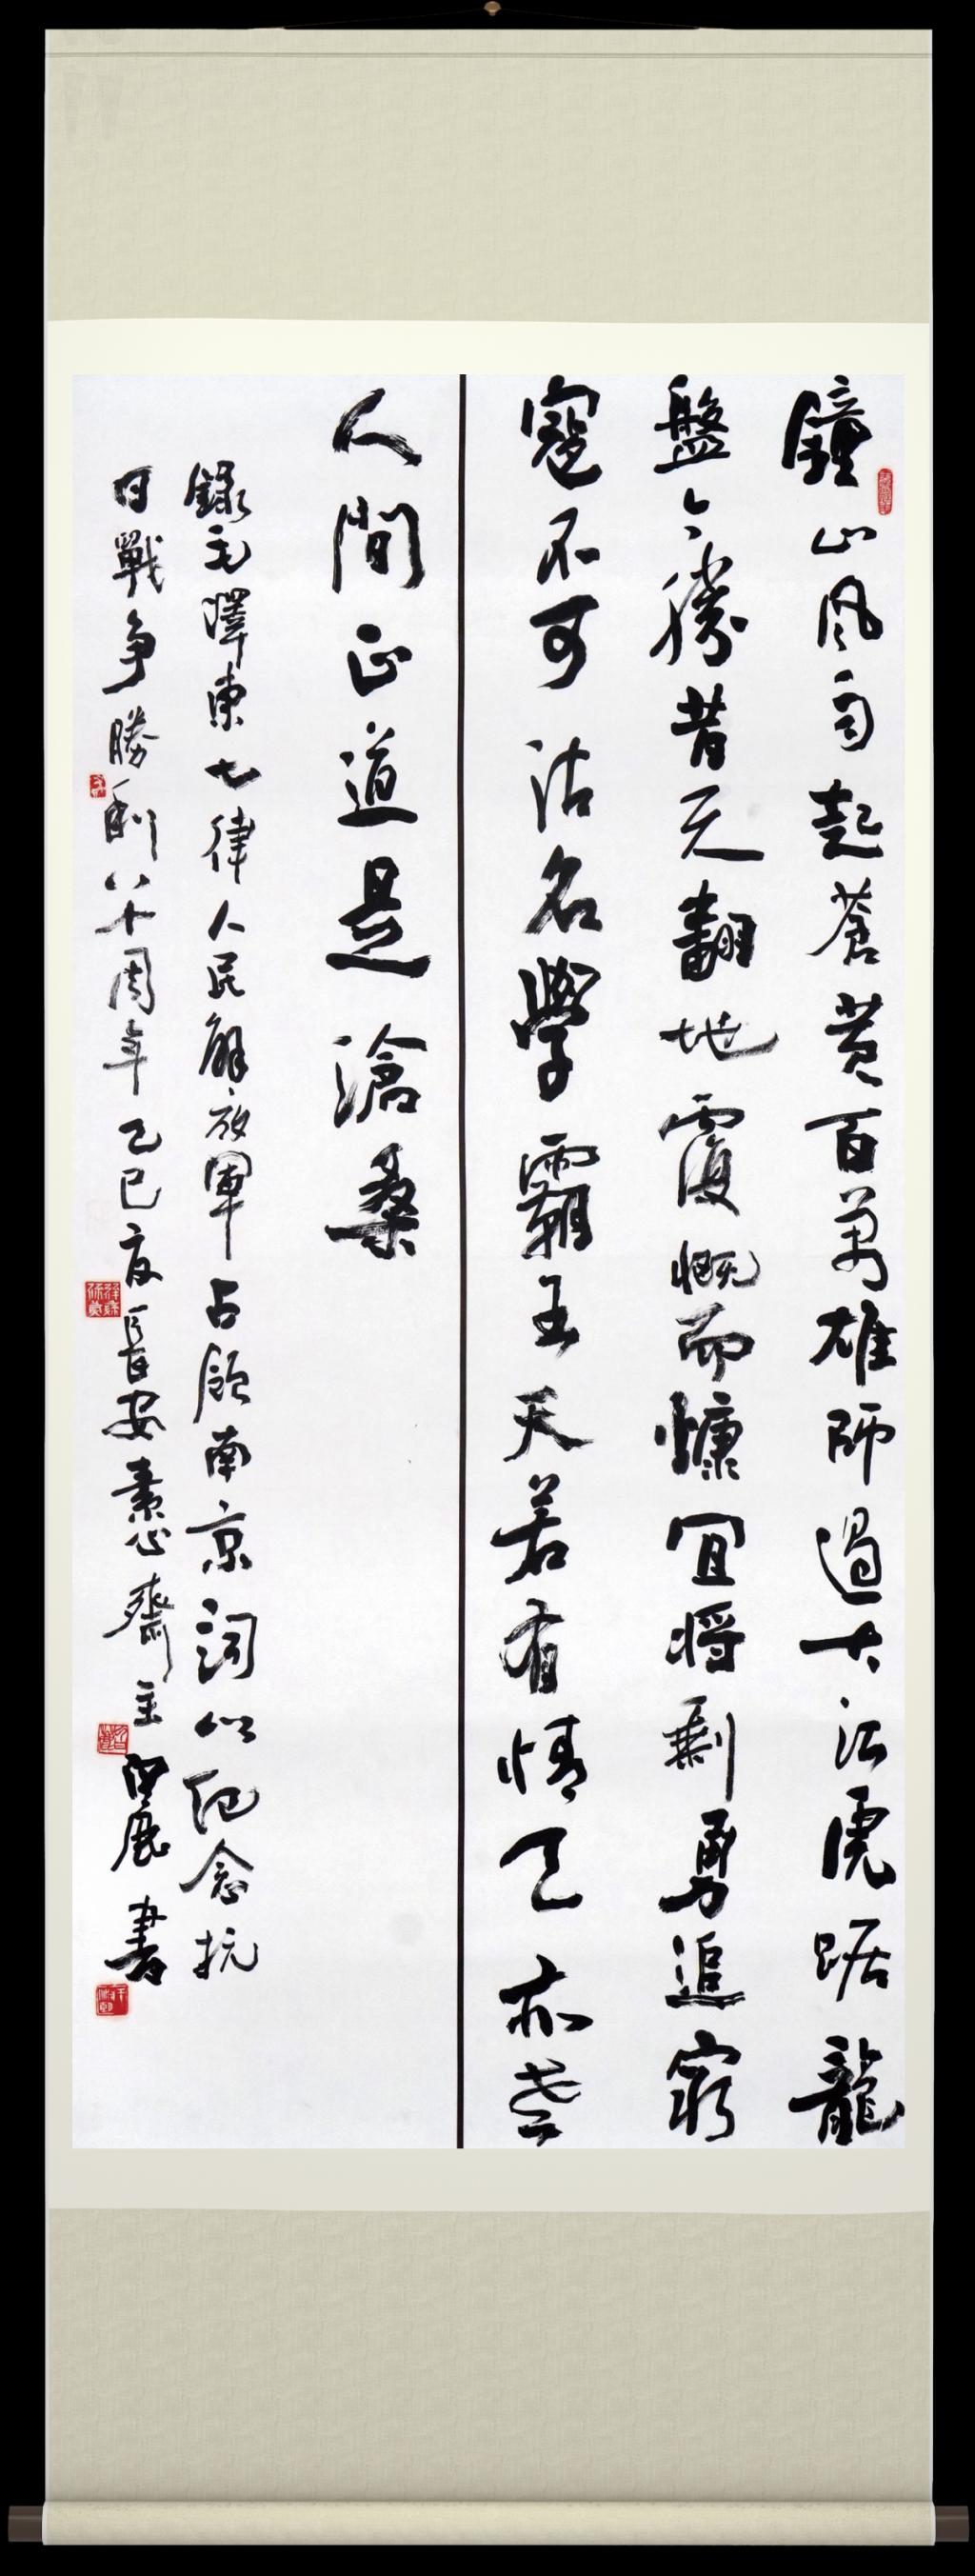 鐘山風雨起蒼黄百萬雄師過大江虎踞龍
盤今勝昔天翻地覆慨而慷宜將剩勇追窮
寇不可沽名學霸王天若有情天亦老
人間正道是滄桑
錄毛澤東七律人民解放軍占領南京詞以紀念抗
日戰爭勝利八十周年乙巳夏長安素心齋主 書